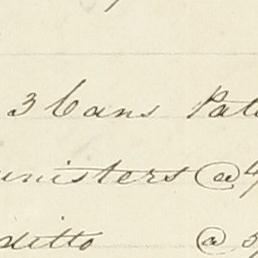 3 Cans Pat
nisters @ 4
ditto @ 3